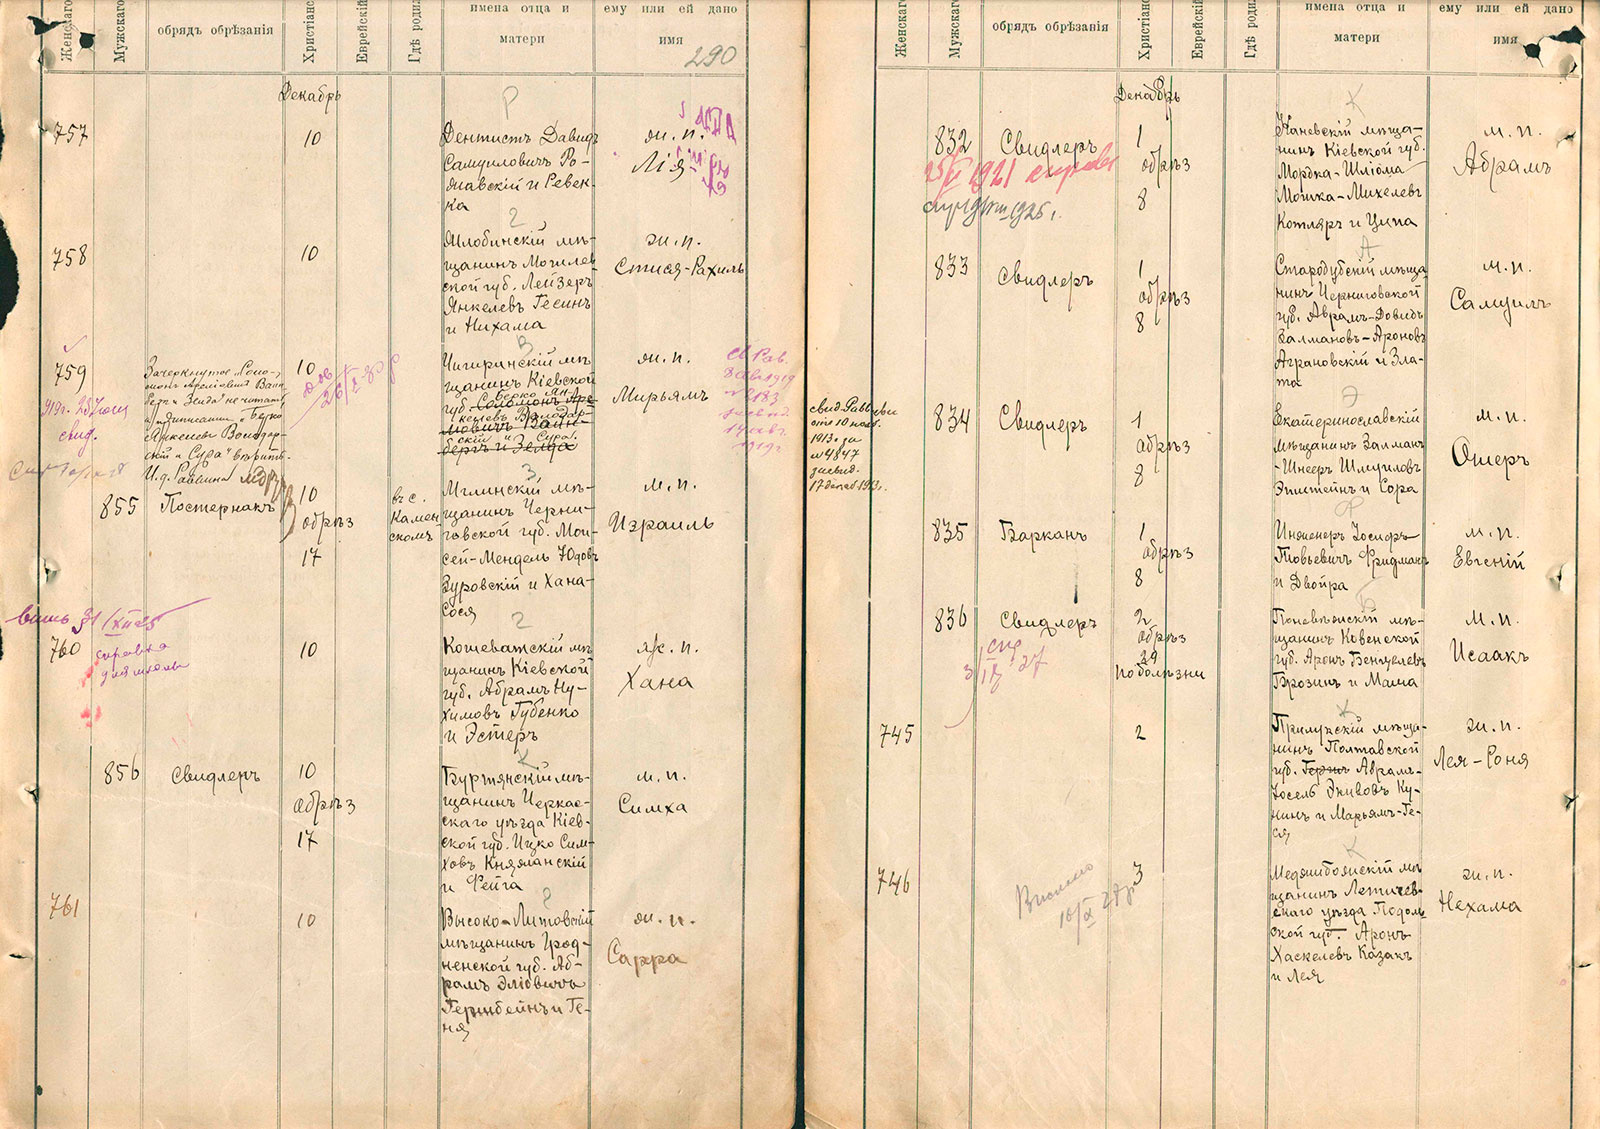 Женскаго
Мужскаго
обрядъ обрѣзанія
Христіанс
Еврейскій
Гдѣ родил
имена отца и
матери
ему или ей дано
имя
290
Декабрь
757
10
Дентистъ Давидъ
Самуиловичъ Ро-
и Ревек-
ка
ж. п.
Лія
758
10
Жлобинскій мѣ-
щанинъ Могилев
ской губ. Лейзеръ
Янкелев Гесинъ
и Нихама
ж. п.
Стися-Рахиль
759
919г. 23 Іюля
свид.
Зачеркнутое „Соло-
не читать
Янкелевъ Володар-
скій и Сура" вѣрить.
И.д. Раввина
10
26/X-30
Чигиринскій мѣ
щанинъ Кіевской
губ. Соломонъ Аре
Берко Ян-
келевъ Володар-
скій и Сура.
бергъ и Зелда
ж. п.
Мирьямъ
св Рав.
1919г
855
Постернакъ
10
обрѣз
17
въ с.
Камен
скомъ
Мглинскій мѣ-
щанинъ Черни-
говской губ. Мои-
сей-Мендель Юдовъ
Зуровскій и Хана-
Сося
м. п.
Израиль
31/XII-25
760
справка
для школы
10
Кошеватскій мѣ
щанинъ Кіевской
губ. Абрамъ Ну-
химовъ Губенко
и Эстеръ
ж. п.
Хана
856
Свидлеръ
10
обрѣз
17
Буртянскій мѣ-
щанинъ Черкас-
скаго уѣзда Кіев-
ской губ. Ицко Сим-
ховъ Княжанскій
и Фейга
м. п.
Симха
761
10
Высоко-Литовскій
мѣщанинъ Грод-
ненской губ. Аб-
рамъ Эліовичъ
Герцбейнъ и Ге-
ня
ж. п.
Сарра
Женскаго
Мужскаго
обрядъ обрѣзанія
Христіанс
Еврейскій
Гдѣ родил
имена отца и
матери
ему или ей дано
имя
Декабрь
832
Свидлеръ
1921
1925г.
1
обрѣз
8
Каневскій мѣща-
нинъ Кіевской губ.
Мордка-Шліома
Мошка-Михелевъ
Котляръ и Ципа
м. п.
Абрамъ
833
Свидлеръ
1
обрѣз
8
Стародубскій мѣща
нинъ Черниговской
губ. Аврамъ-Довидъ
Залмановъ-Ароновъ
Аграновскій и Зла-
та
м. п.
Самуилъ
свид. Равв
отъ 10 нояб.
1913г. за
№ 4847
засвид.
17 декаб. 1913г.
834
Свидлеръ
1
обрѣз
8
Екатеринославскій
мѣщанинъ Залманъ
-Шнееръ Шмуиловъ
Эпштейнъ и Сора
м. п.
Ошеръ
835
Барканъ
1
обрѣз
8
Инженеръ Іосифъ
Товьевичъ Фридманъ
и Двойра
м. п.
Евгеній
836
Свидлеръ
2
обрѣз
29
по болѣзни
Поневѣжскій мѣ-
щанинъ Ковенской
губ. Аронъ Бенцелевъ
Брозинъ и Маша
м. п.
Исаакъ
745
2
Прилукскій мѣща-
нинъ Полтавской
губ. Абрамъ-
Іосель Экивовъ Ку-
нинъ и Марьямъ-Ге-
ся
ж. п.
Лея-Роня
746
3
Меджибожскій мѣ
щанинъ Летичев-
скаго уѣзда Подоль
ской губ. Аронъ
Хаскелевъ Казакъ
и Лея
ж. п.
Нехама